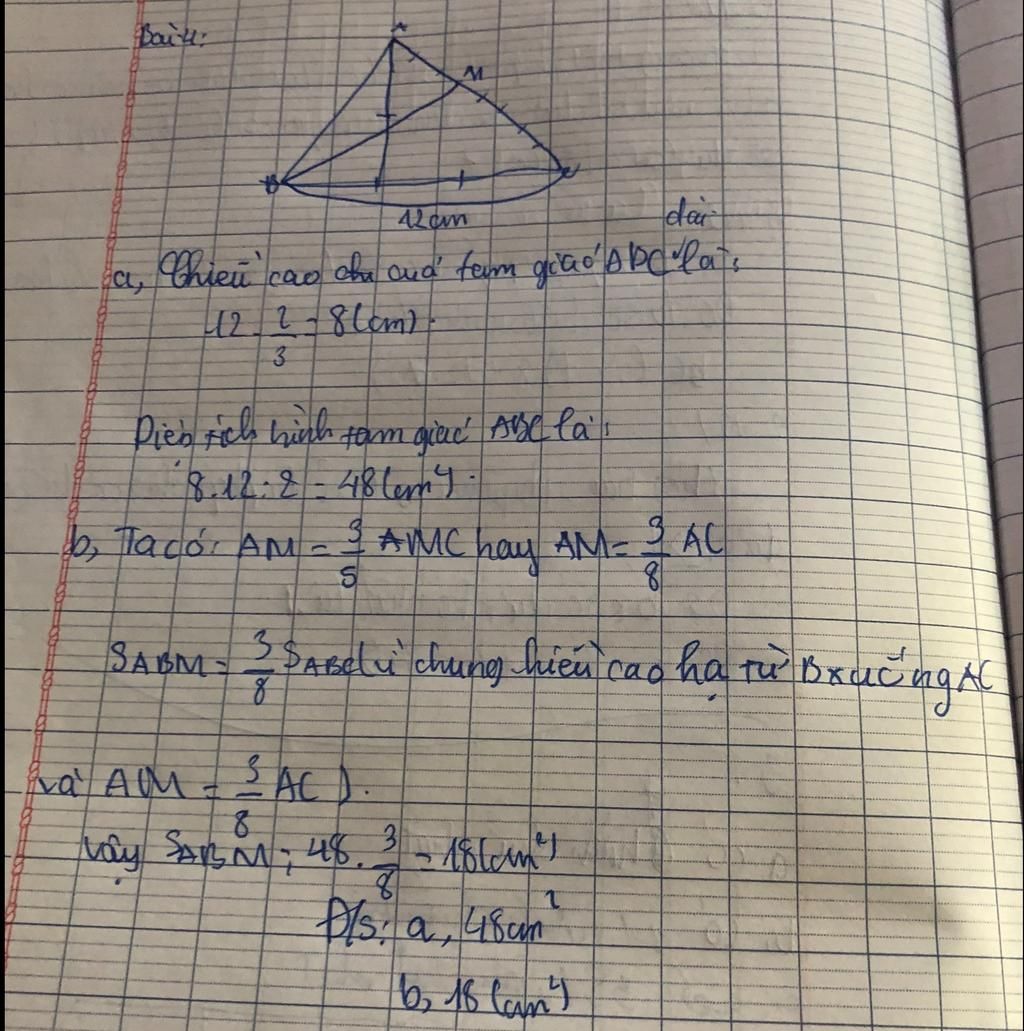 Bài 4:
A
M
B
C
12cm
dài
a, Chiều cao của tam giác ABC là:
12 . 2/3 = 8(cm).
Diện tích hình tam giác ABC là:
8.12:2 = 48(cm²).
b, Ta có: AM = 3/5 MC hay AM = 3/8 AC
SABM = 3/8 SABC (vì chung chiều cao hạ từ B xuống AC
và AM = 3/8 AC).
Vậy SABM: 48. 3/8 = 18(cm²)
Đ/s: a, 48cm²
b, 18 (cm²)